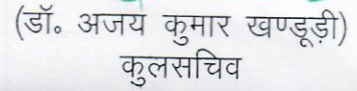 (डॉ० अजय कुमार खण्डूड़ी)
कुलसचिव